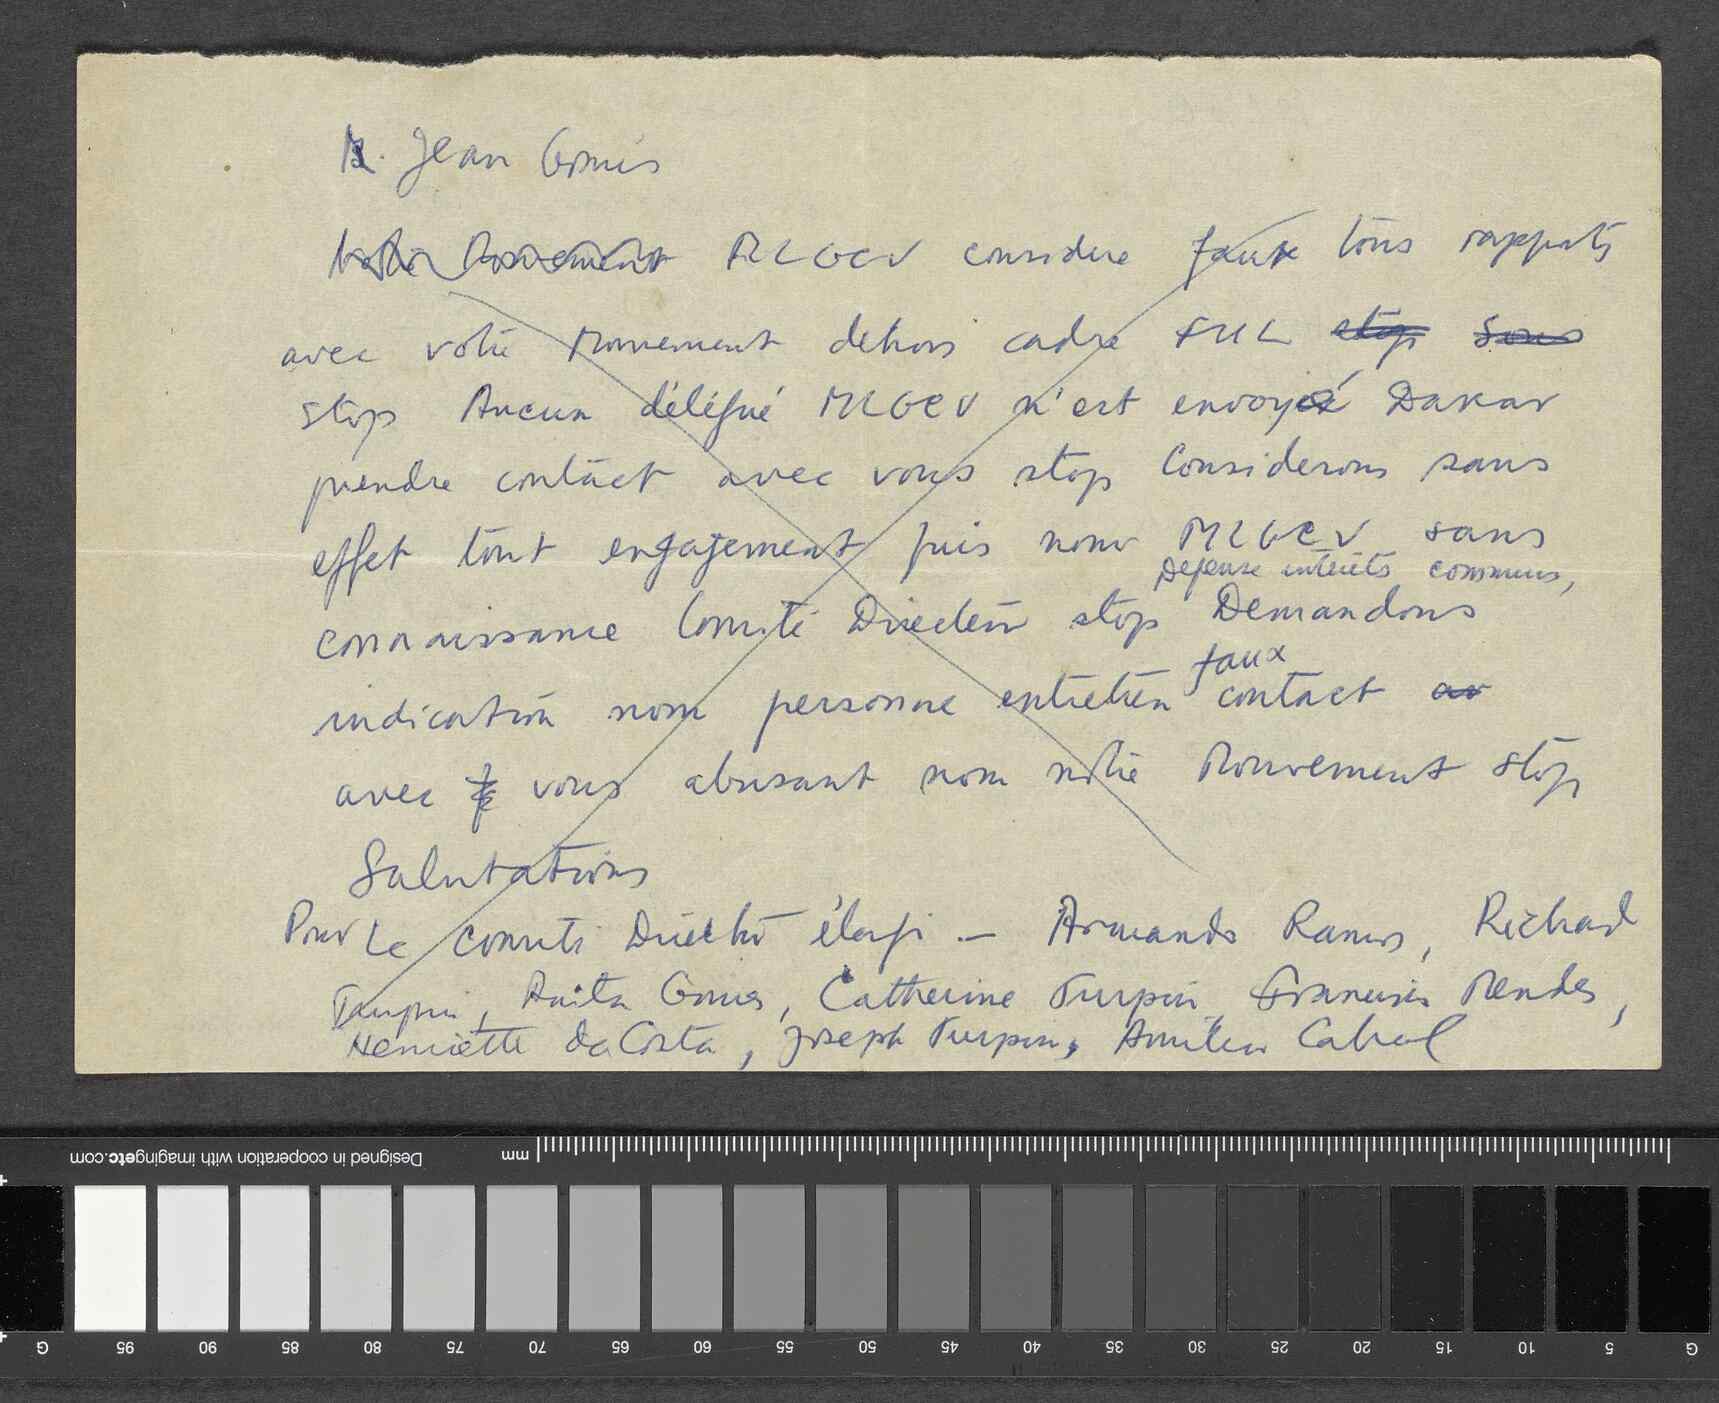 M. Jean Gomis
Notre Mouvement MLGCV considère faux tous rapports
avec votre Mouvement dehors cadre FUL stop Sous
stop Aucun délégué MLGCV n'est envoyé Dakar
prendre contact avec vous stop Considerons sans
effet tout engagement pris nom MLGCV sans
Defense intérêts communs,
connaissance Comité Directeur stop Demandons
faux
indication nom personne entretien contact av
avec vous abusant nom notre Mouvement stop
Salutations
Pour Le Comité Directeur élargi — Armando Ramos, Richard
Turpin, Anita Gomes, Catherine Turpin, Francisco Mendes,
Henriette da Costa, Joseph Turpin, Amilcar Cabral
Designed in cooperation with imagingetc.com
mm
G 95 90 85 80 75 70 65 60 55 50 45 40 35 30 25 20 15 10 5 G